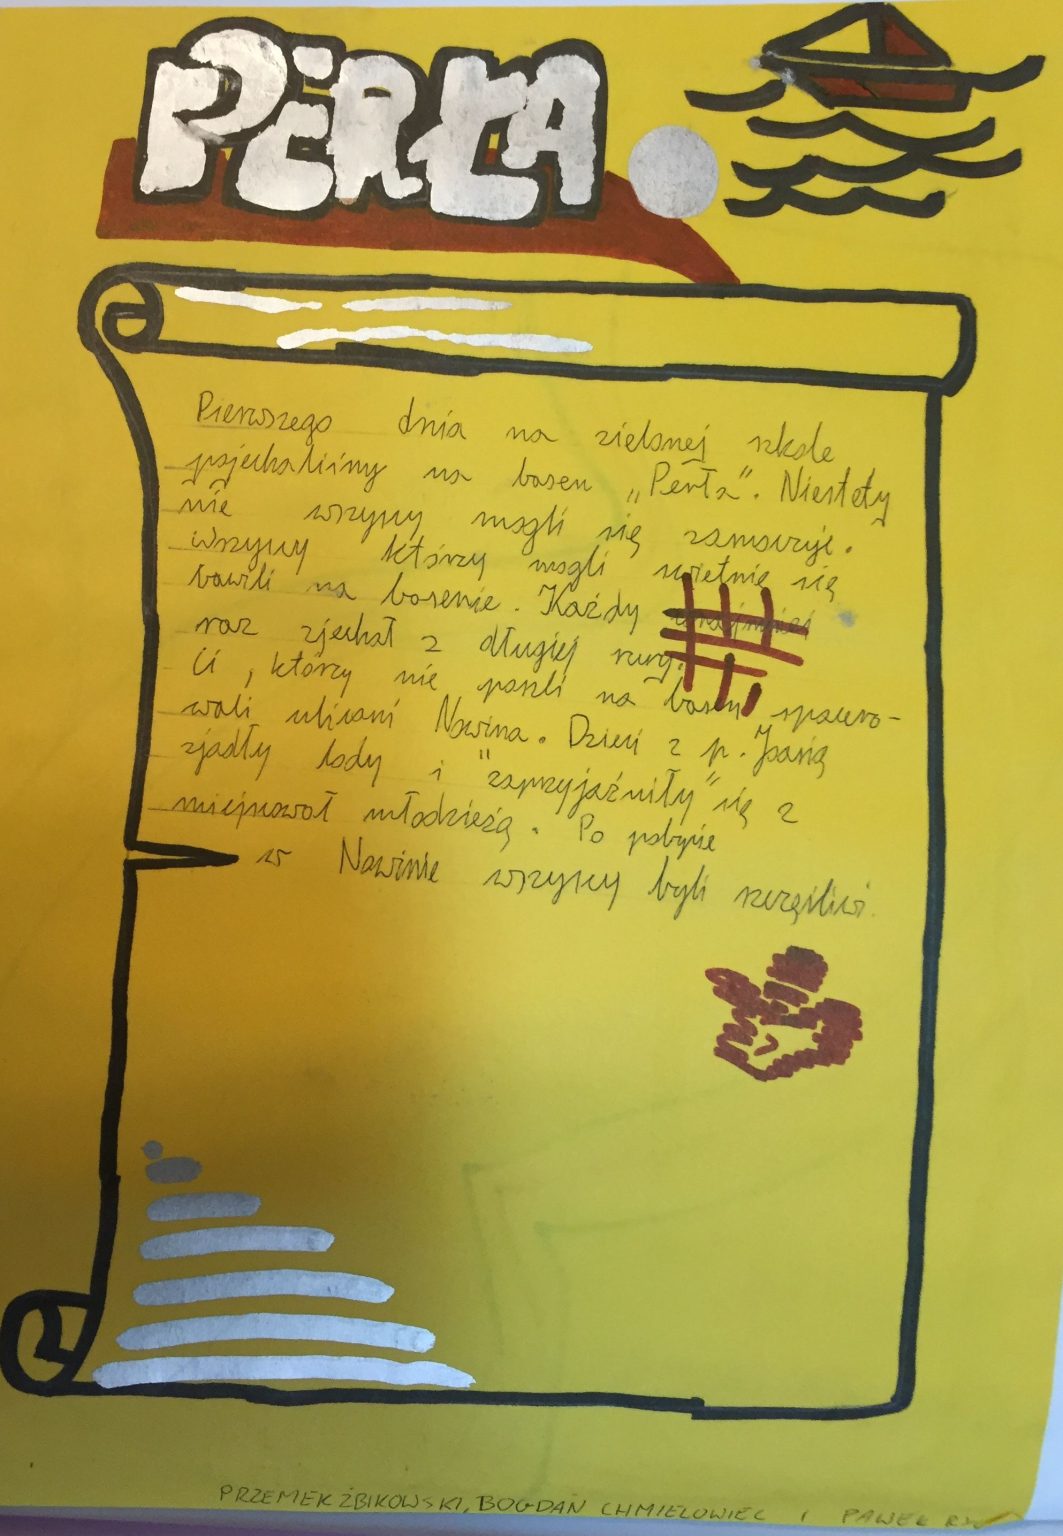 PERŁA
Pierwszego dnia na zielonej szkole
pojechaliśmy na basen „Perła”. Niestety
nie wszyscy mogli się zamoczyć.
Wszyscy którzy mogli świetnie się
bawili na basenie. Każdy conajmniej
raz zjechał z długiej rury.
Ci, którzy nie poszli na basen spacero-
wali ulicami Nowina. Dzieci z p. Joasią
zjadły lody i "zaprzyjaźniły" się z
miejscową młodzieżą. Po pobycie
w Nowinie wszyscy byli szczęśliwi.
PRZEMEK ŻBIKOWSKI, BOGDAN CHMIELOWIEC i PAWEŁ